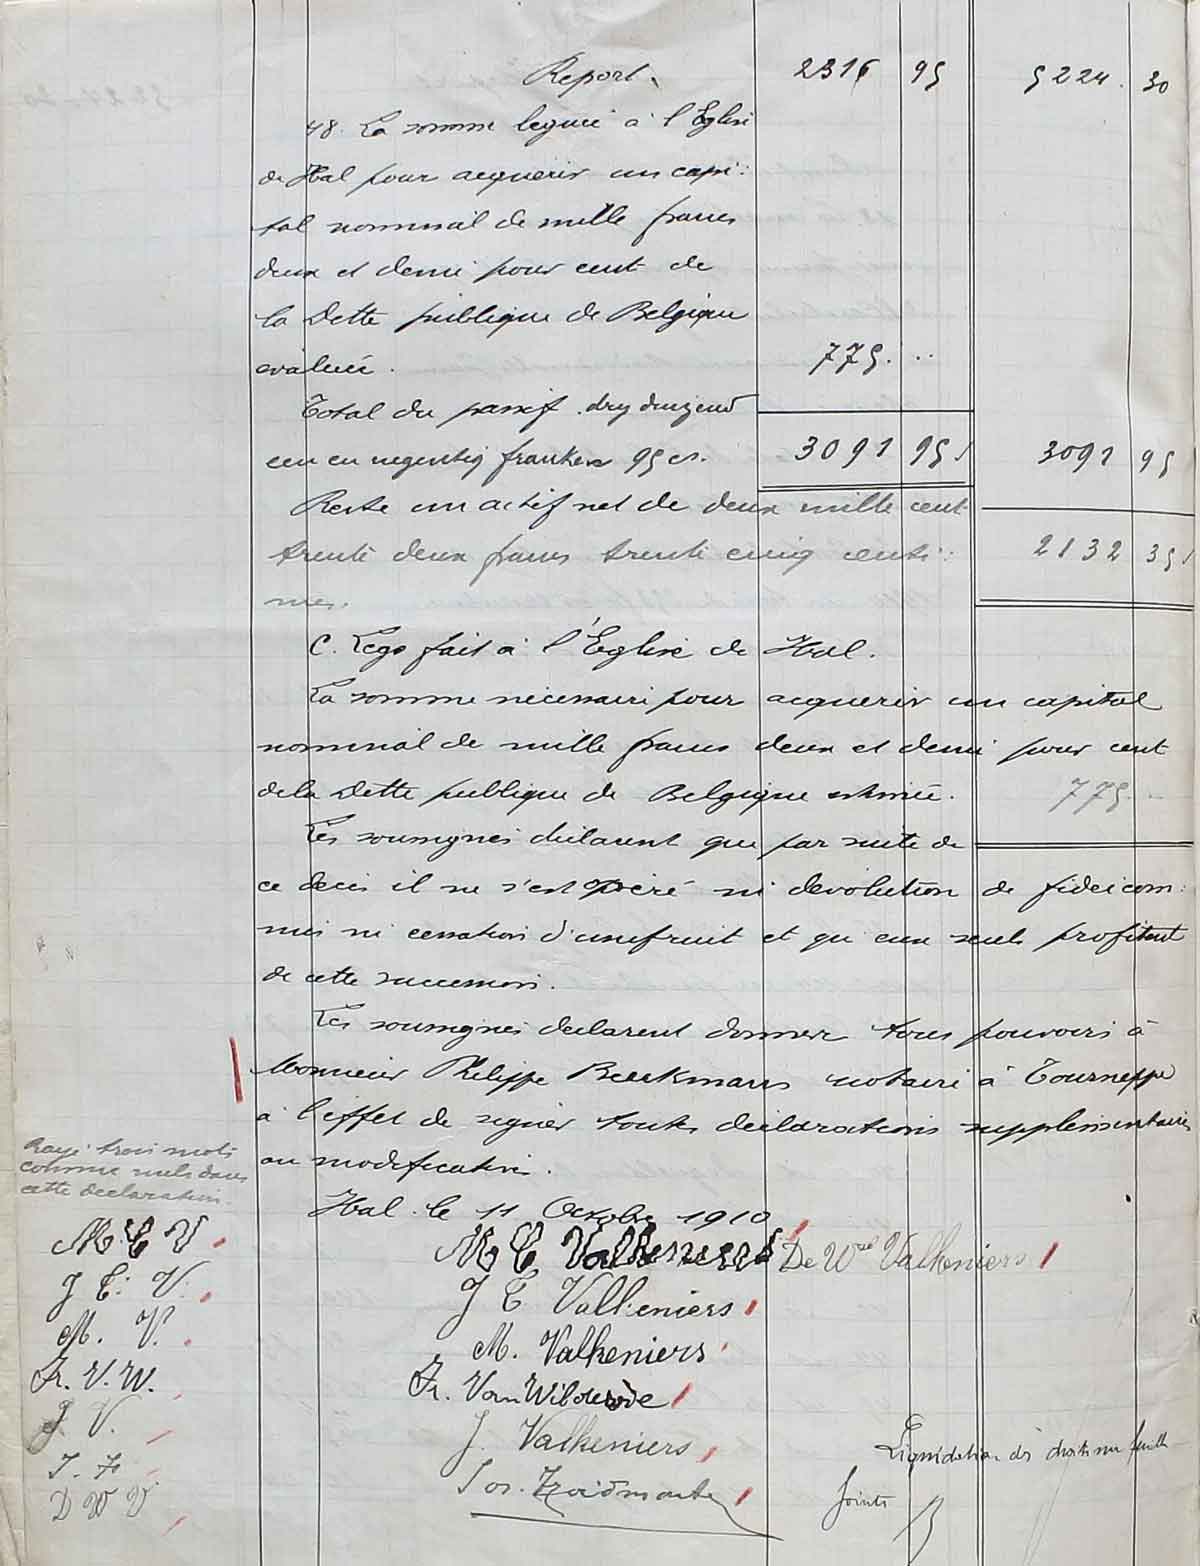 Report. 2316 95 5224. 30
48. La somme leguée à l'Eglise
de Hal pour acquerir un capi:
tal nominal de mille francs
deux et demi pour cent de
la Dette publique de Belgique
evaluée. 775. ..
Total du passif. dry duizend
een en negentig franken 95 cs. 3091 95 3091 95
Reste un actif net de deux mille cent
trente deux francs trente cinq centi: 2132 35
mes.
C. Legs fait à l'Eglise de Hal.
La somme nécessaire pour acquerir un capital
nominal de mille francs deux et demi pour cent
de la Dette publique de Belgique estimée. 775. ..
Les soussignés déclarent que par suite de
ce décès il ne s'est opéré ni dévolution de fideicom:
mis ni cessation d'usufruit et qu'eux seuls profitent
de cette succession.
Les soussignés declarent donner tous pouvoirs à
Monsieur Philippe Beeckmans notaire à Tourneppe
à l'effet de signer toutes déclarations supplémentaires
ou modification.
Rayé trois mots
comme nuls dans
cette declaration.
Hal. le 11 Octobre 1910
M C V M C Valkeniers De Wed Valkeniers
J E: V. J E Valkeniers
M. V. M. Valkeniers
Fr. V. W. Fr. Van Wilderode
J. V. J. Valkeniers
J. F. Jos.
D W V
Liquidation des droits sur feuille
jointe